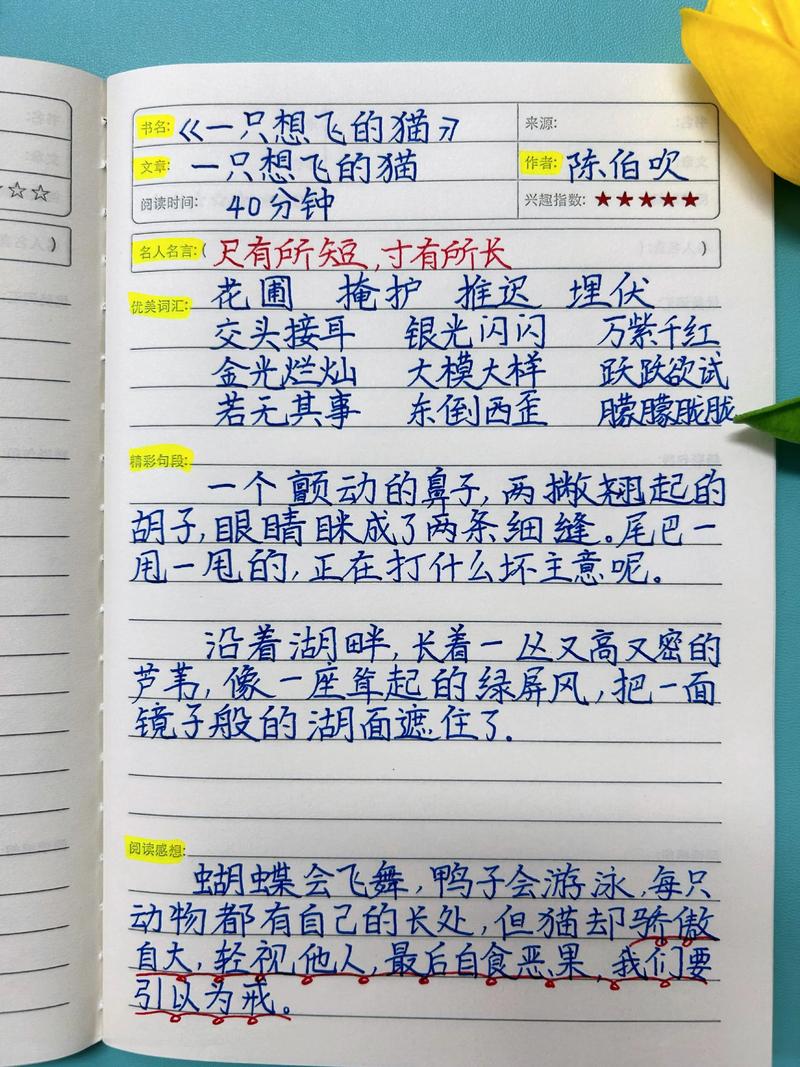 书名:《一只想飞的猫》 来源:
文章: 一只想飞的猫 作者: 陈伯吹
阅读时间: 40分钟 兴趣指数: ★★★★★
名人名言:( 尺有所短,寸有所长 )
优美词汇: 花圃 掩护 推迟 埋伏
交头接耳 银光闪闪 万紫千红
金光烂灿 大模大样 跃跃欲试
若无其事 东倒西歪 朦朦胧胧
精彩句段:
一个颤动的鼻子,两撇翘起的
胡子,眼睛眯成了两条细缝。尾巴一
甩一甩的,正在打什么坏主意呢。
沿着湖畔,长着一丛又高又密的
芦苇,像一座耸起的绿屏风,把一面
镜子般的湖面遮住了.
阅读感想:
蝴蝶会飞舞,鸭子会游泳,每只
动物都有自己的长处,但猫却骄傲
自大,轻视他人,最后自食恶果,我们要
引以为戒。